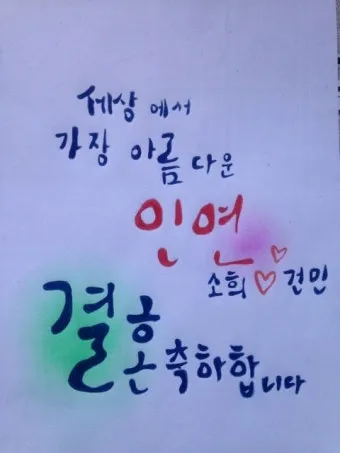 세상에서
가장 아름다운
인연
소희♡건민
결혼 축하합니다